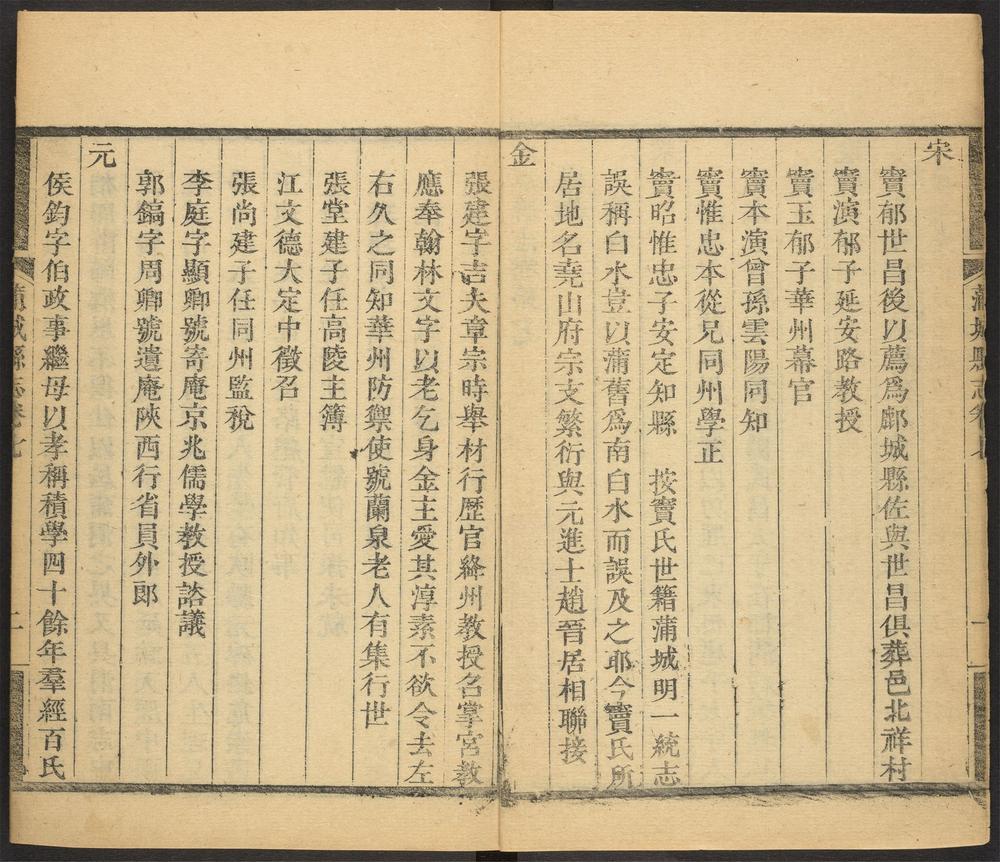 宋
竇郁世昌後以薦爲鄜城縣佐與世昌俱葬邑北祥村
竇演郁子延安路教授
竇玉郁子華州幕官
竇本演曾孫雲陽同知
竇惟忠本從兄同州學正
竇昭惟忠子安定知縣　按竇氏世籍蒲城明一統志
誤稱白水豈以蒲舊爲南白水而誤及之耶今竇氏所
居地名堯山府宗支繁衍與元進士趙晉居相聯接
金
張建字吉夫章宗時舉材行歷官絳州教授名掌宮教
應奉翰林文字以老乞身金主愛其淳素不欲令去左
右久之同知華州防禦使號蘭泉老人有集行世
張堂建子任高陵主簿
江文德大定中徵召
張尚建子任同州監稅
李庭字顯卿號寄庵京兆儒學教授諮議
郭鎬字周卿號遺庵陝西行省員外郎
元
侯鈞字伯政事繼母以孝稱積學四十餘年羣經百氏
蒲城縣志卷七
二